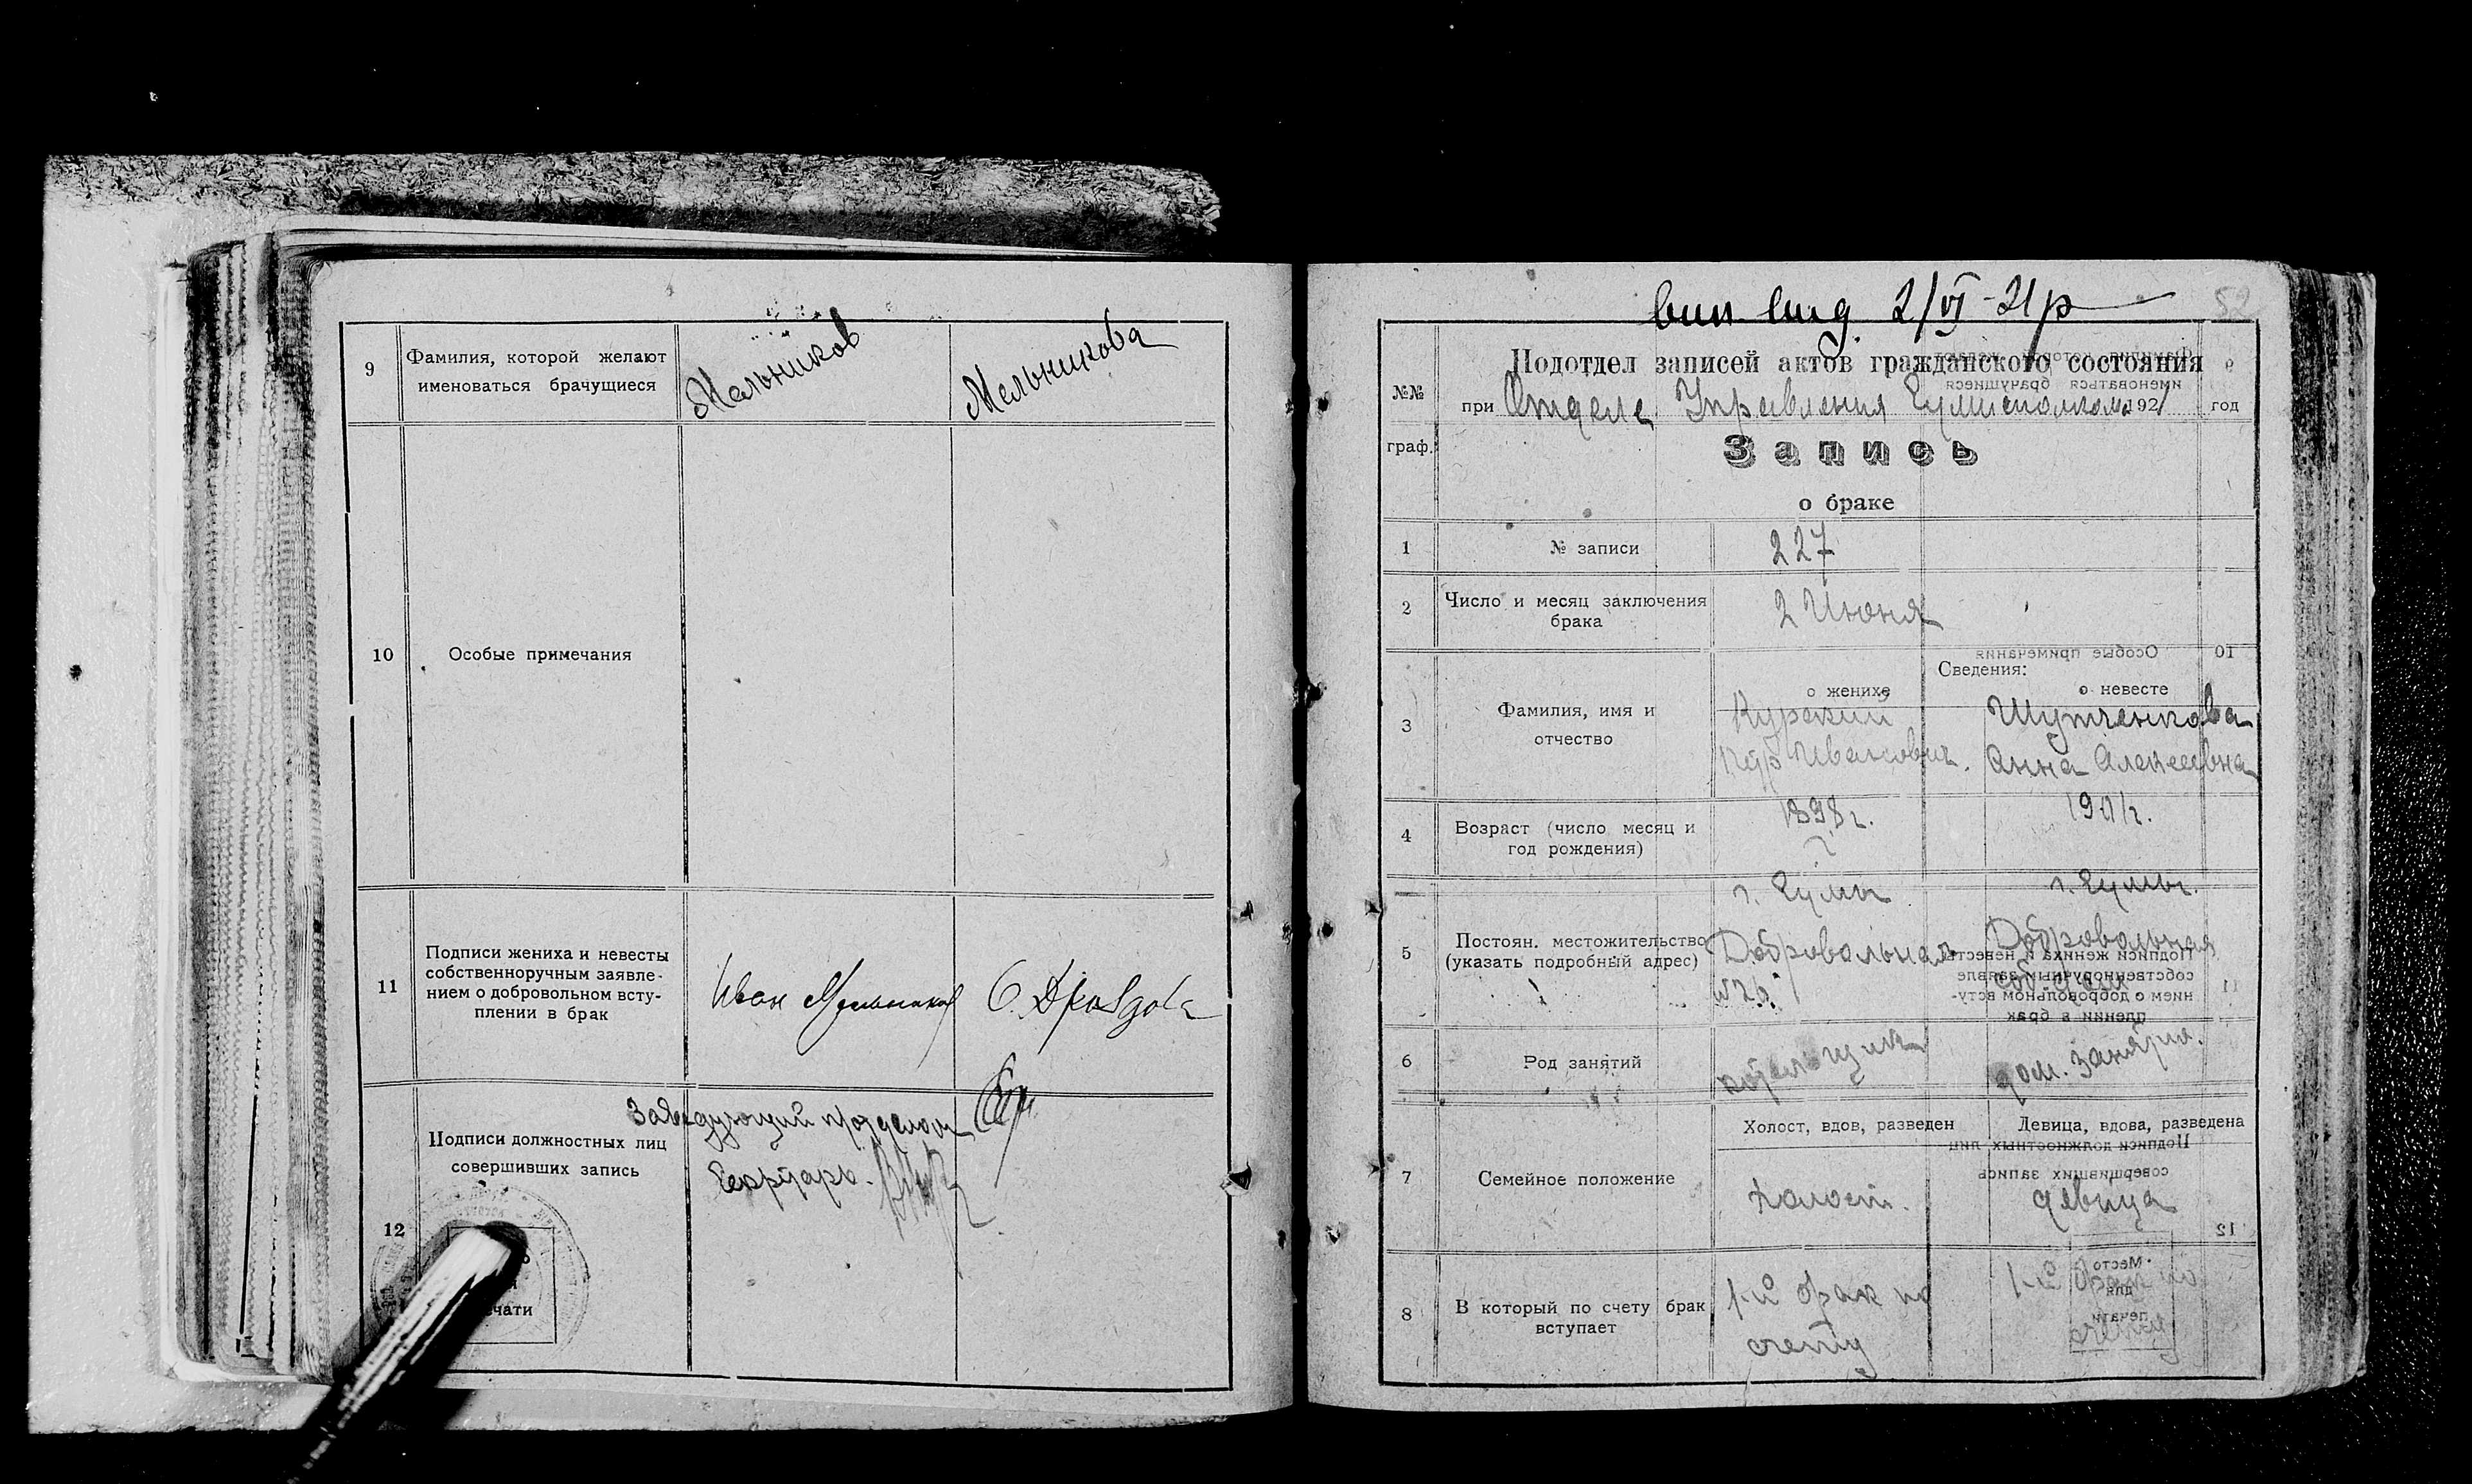 9
Фамилия, которой желают
именоваться брачущиеся
Мельников
Мельникова
10
Особые примечания
11
Подписи жениха и невесты
собственноручным заявле-
нием о добровольном всту-
плении в брак
Иван Мельников
Дроздова
12
Подписи должностных лиц
совершивших запись
Заведующий
Секретарь
2/VI-21р
52
№№
граф.
Подотдел записей актов гражданского состояния
при Отделе Управления 1921 год
Запись
о браке
1
№ записи
227
2
Число и месяц заключения
брака
2 Июня
Сведения:
3
Фамилия, имя и
отчество
о женихе
Иванович
о невесте
Шутченкова
Анна Алексеевна
4
Возраст (число месяц и
год рождения)
1898г.
1901г.
5
Постоян. местожительство
(указать подробный адрес)
г. Сумы
Добровольная
№26
г. Сумы
Добровольная
соб. дом
6
Род занятий
дом. занятия
7
Семейное положение
Холост, вдов, разведен
Девица, вдова, разведена
холост.
девица
8
В который по счету брак
вступает
1-й брак по
счету
1-й брак по
счету